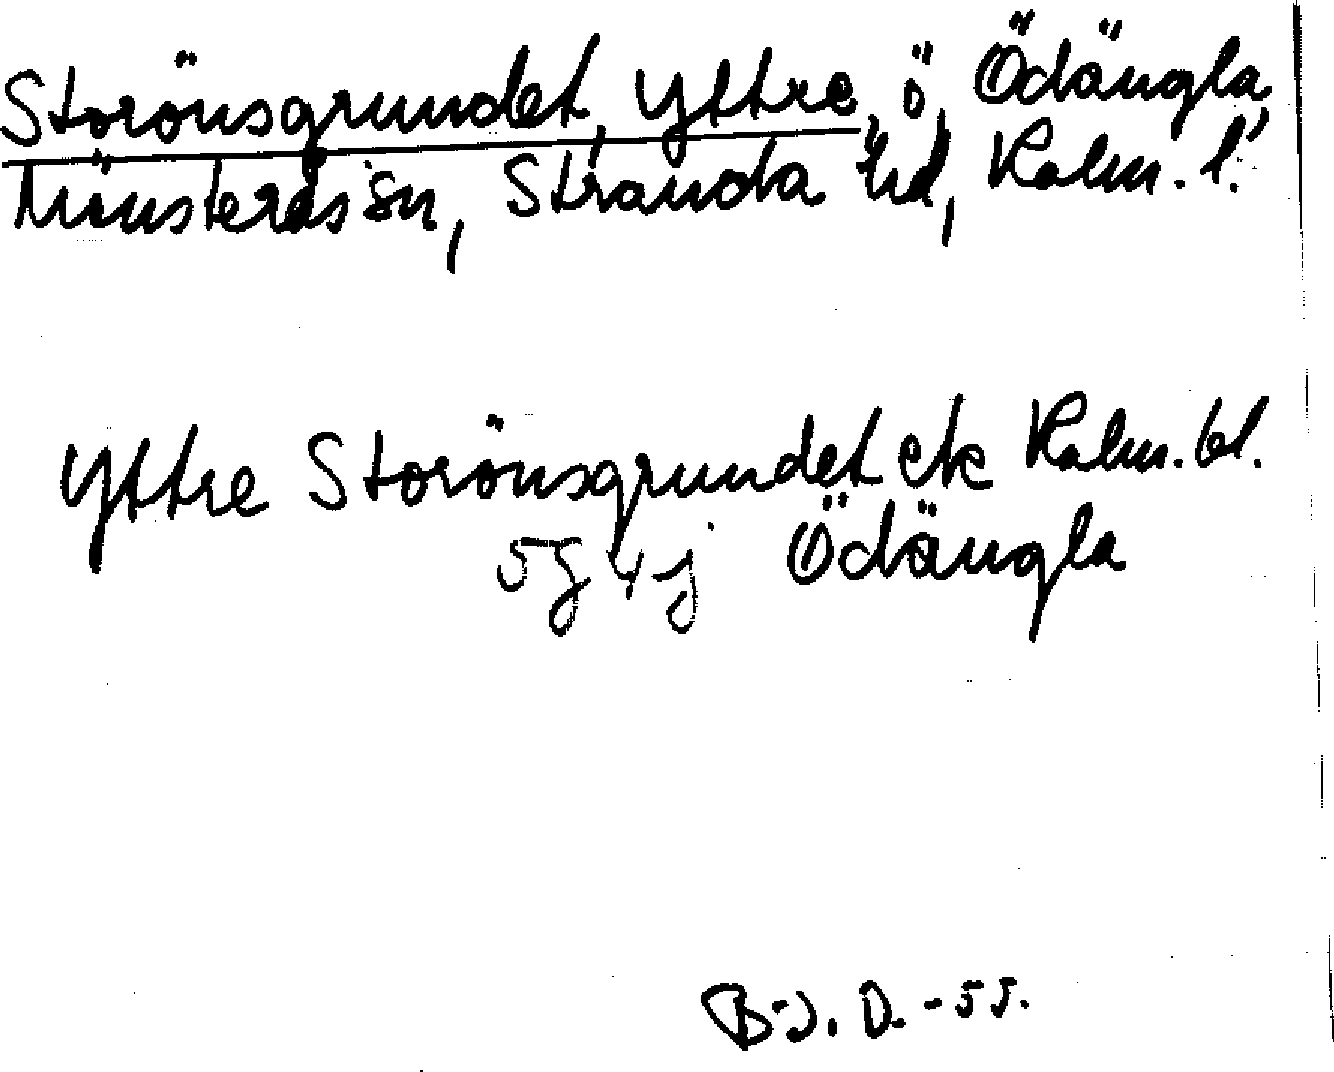 Storönsgrundet, Yttre, ö, Ödängla,
Mönsterås sn, Stranda hd, Kalm. l.
Yttre Storönsgrundet ek Kalm. bl.
5g 4j Ödängla
B-J. D. -55.